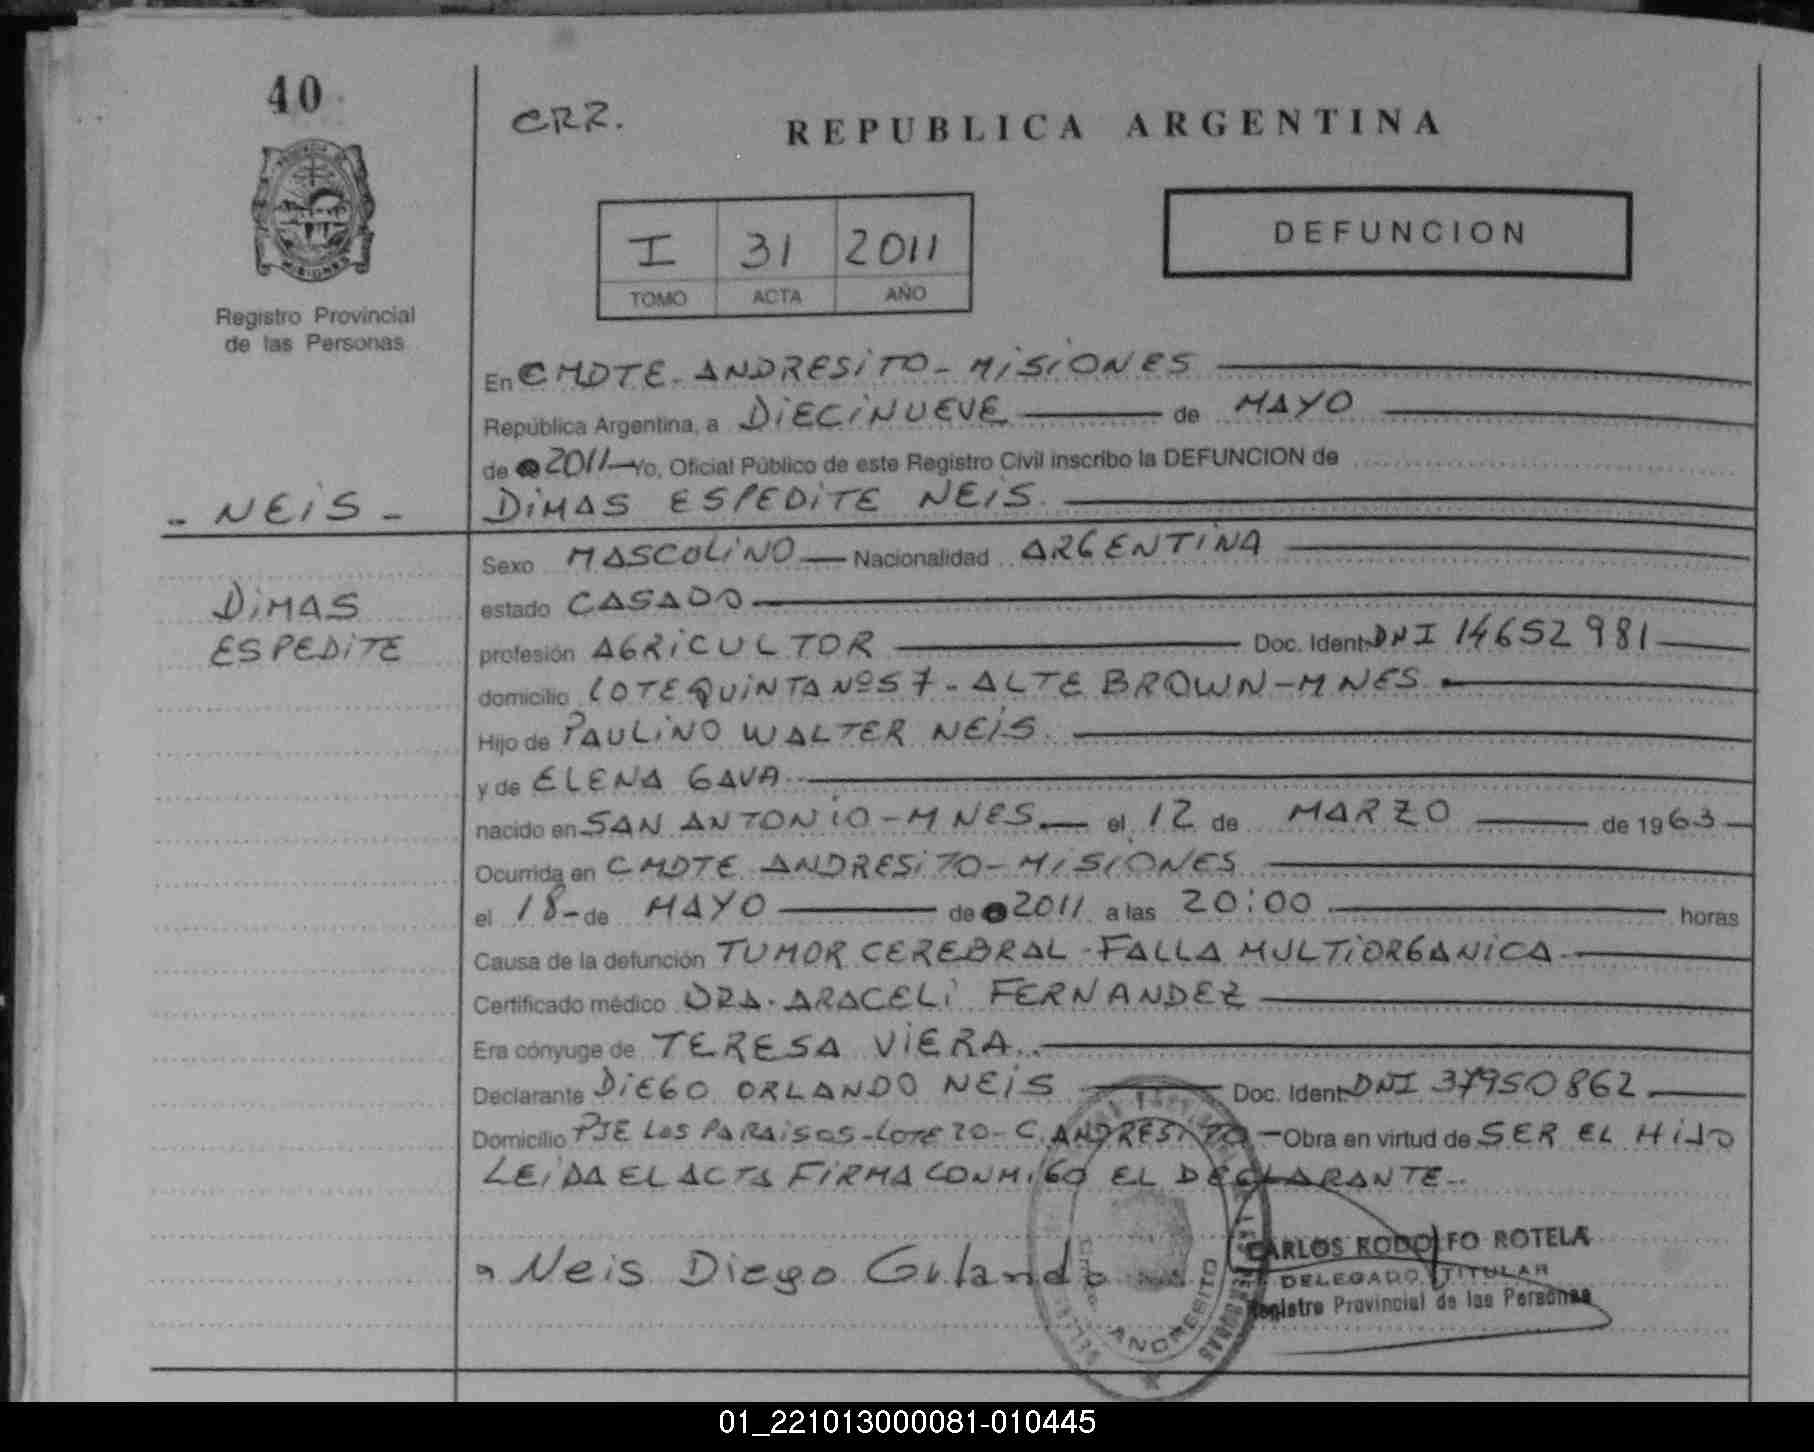 40
CRR.
REPUBLICA ARGENTINA
I 31 2011
TOMO ACTA AÑO
DEFUNCION
MISIONES
Registro Provincial
de las Personas
En CMDTE. ANDRESITO - MISIONES
República Argentina, a DIECINUEVE de MAYO
de 2011 Yo, Oficial Público de este Registro Civil inscribo la DEFUNCION de
- NEIS - DIMAS ESPEDITE NEIS
Sexo MASCOLINO Nacionalidad ARGENTINA
DIMAS estado CASADO
ESPEDITE profesión AGRICULTOR Doc. Ident. DNI 14652981
domicilio LOTE QUINTA Nº 57 - ALTE BROWN - MNES
Hijo de PAULINO WALTER NEIS
y de ELENA GAVA
nacido en SAN ANTONIO - MNES. el 12 de MARZO de 1963
Ocurrida en CMDTE ANDRESITO - MISIONES
el 18 - de MAYO de 2011 a las 20:00 horas
Causa de la defunción TUMOR CEREBRAL - FALLA MULTIORGANICA
Certificado médico DRA. ARACELI FERNANDEZ
Era cónyuge de TERESA VIERA
Declarante DIEGO ORLANDO NEIS Doc. Ident. DNI 37950862
Domicilio PJE LOS PARAISOS - LOTE 20 - C. ANDRESITO - Obra en virtud de SER EL HIJO
LEIDA EL ACTA FIRMA CONMIGO EL DECLARANTE.
Neis Diego Orlando
ANDRESITO
CARLOS RODOLFO ROTELA
DELEGADO TITULAR
Registro Provincial de las Personas
01_221013000081-010445